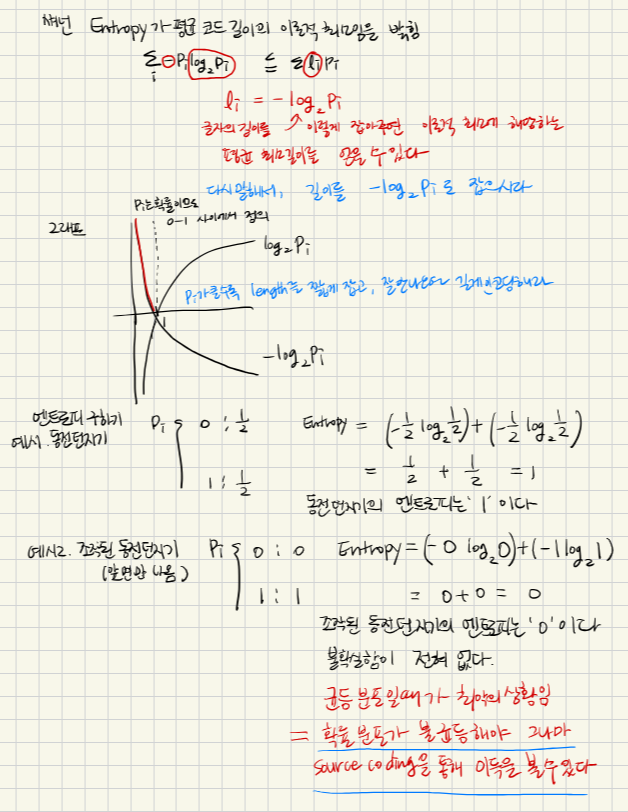 섀넌 Entropy가 평균 코드 길이의 이론적 최소임을 밝힘
Σ -Pi log₂Pi ≤ Σ li Pi
i
li = -log₂Pi
글자의 길이를 이렇게 잡아주면 이론적 최소에 해당하는
평균 최소길이를 얻을 수 있다
다시말해서, 길이를 -log₂Pi로 잡으시다
Pi는 확률이므로
0-1 사이에서 정의
그래프
log₂Pi
Pi가 클수록 length를 짧게 잡고, 잘 안나오면 길게 인코딩해라
1
-log₂Pi
엔트로피 구하기
예시. 동전던지기
Pi { 0 : 1/2
1 : 1/2
Entropy = (-1/2 log₂ 1/2) + (-1/2 log₂ 1/2)
= 1/2 + 1/2 = 1
동전던지기의 엔트로피는 '1' 이다
예시2. 조작된 동전던지기
(앞면만 나옴)
Pi { 0 : 0
1 : 1
Entropy = (-0 log₂0) + (-1 log₂1)
= 0 + 0 = 0
조작된 동전던지기의 엔트로피는 '0' 이다
불확실함이 전혀 없다.
균등 분포일때가 최악의 상황임
= 확률 분포가 불균등해야 그나마
source coding을 통해 이득을 볼 수 있다